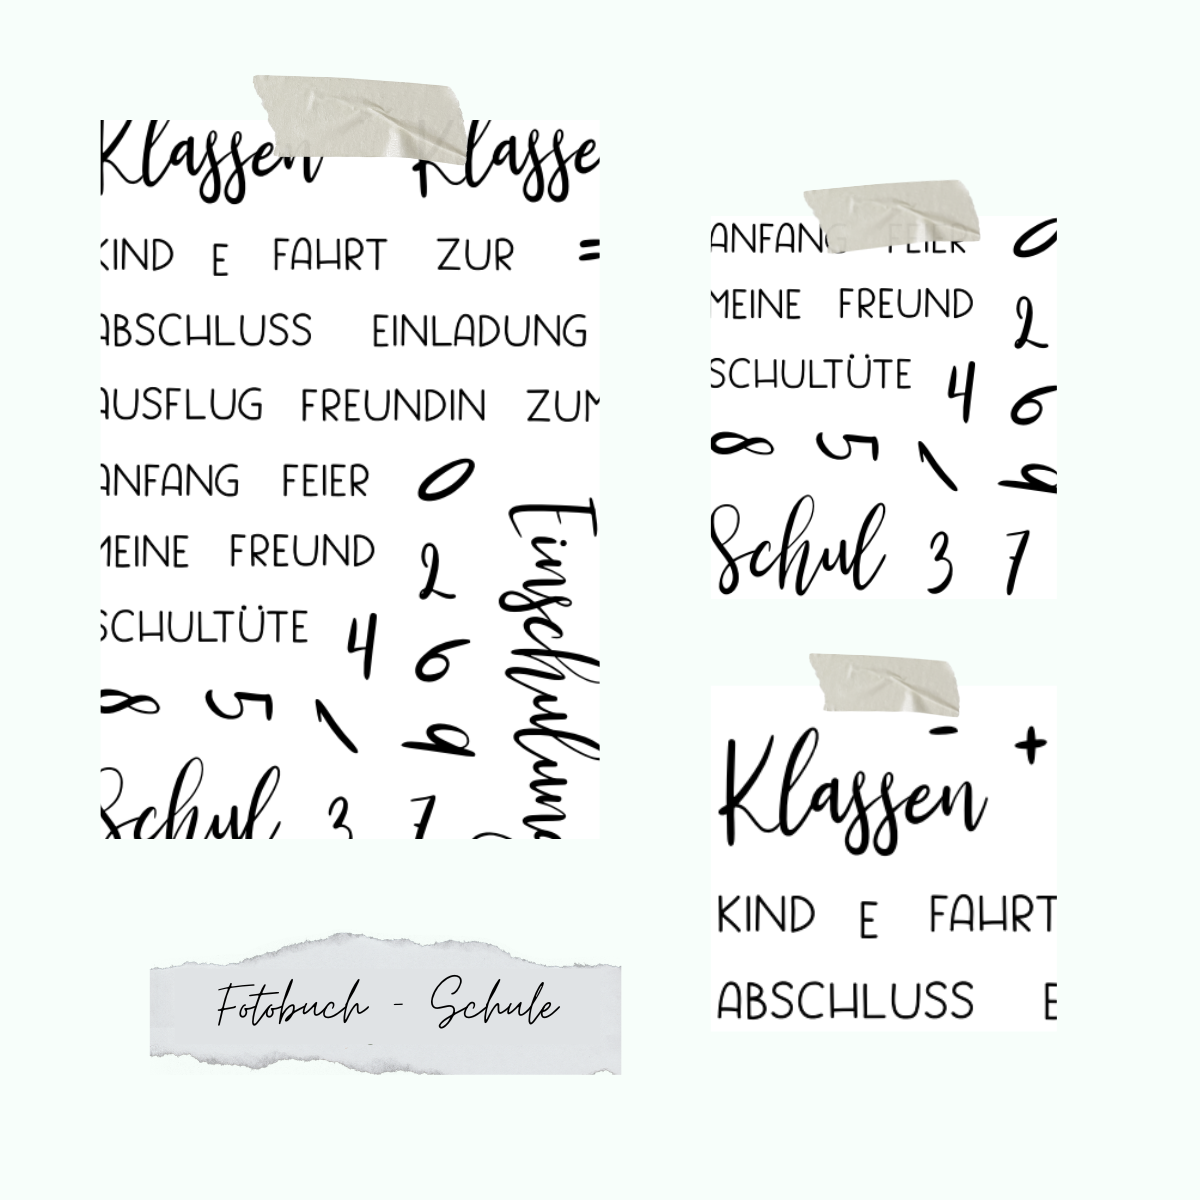 Klassen Klasse
KIND E FAHRT ZUR =
ABSCHLUSS EINLADUNG
AUSFLUG FREUNDIN ZUM
ANFANG FEIER 0
MEINE FREUND 2
SCHULTÜTE 4 6
8 5 1 9
Schul 3 7
Einschulung
ANFANG FEIER 0
MEINE FREUND 2
SCHULTÜTE 4 6
8 5 1 9
Schul 3 7
Klassen - +
KIND E FAHRT
ABSCHLUSS E
Fotobuch - Schule